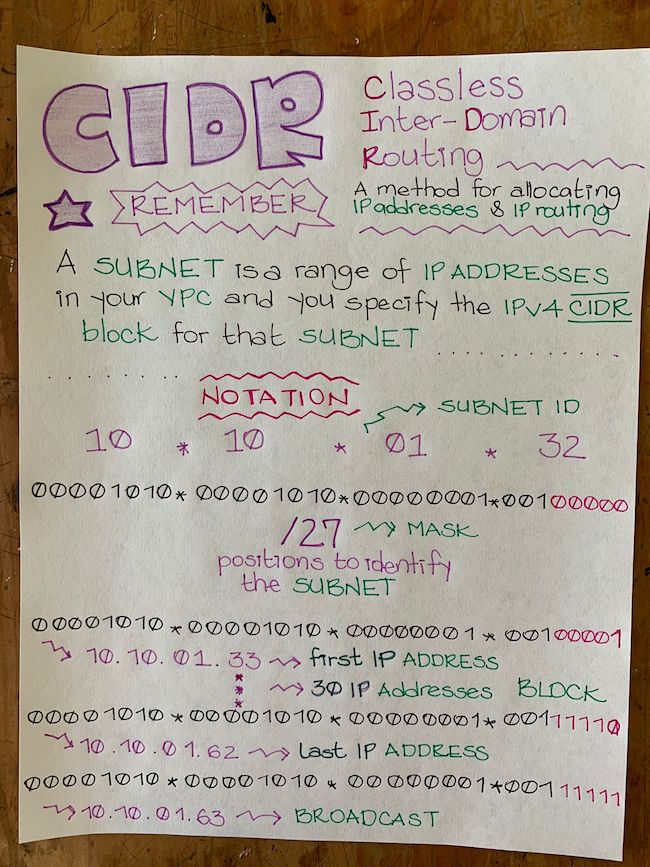 CIDR
Classless
Inter-Domain
Routing
REMEMBER
A method for allocating
IP addresses & IP routing
A SUBNET is a range of IP ADDRESSES
in your VPC and you specify the IPV4 CIDR
block for that SUBNET
NOTATION
SUBNET ID
10 * 10 * 01 * 32
00001010* 00001010*00000001*00100000
/27 MASK
positions to identify
the SUBNET
00001010 * 00001010 * 00000001 * 00100001
10.10.01.33 first IP ADDRESS
30 IP Addresses BLOCK
00001010 * 00001010 * 00000001* 00111110
10.10.01.62 Last IP ADDRESS
00001010 * 00001010 * 00000001*00111111
10.10.01.63 BROADCAST